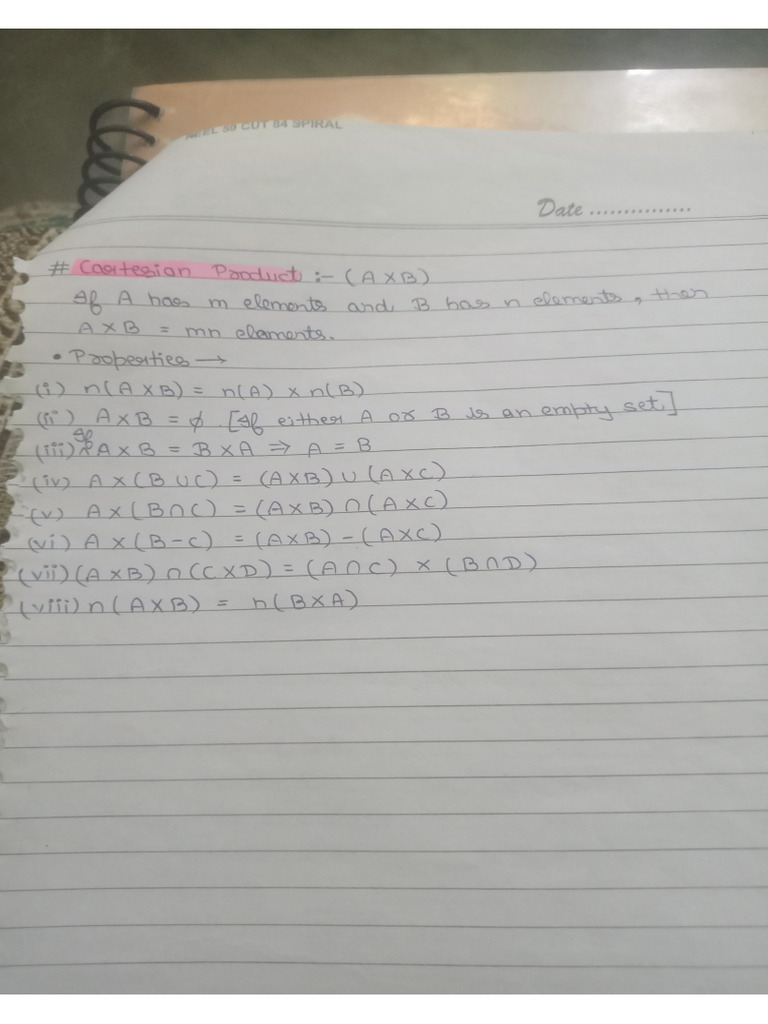 EL 59 CUT 84 SPIRAL
Date ...............
# Cartesian Product :- (A×B)
If A has m elements and B has n elements, then
A×B = mn elements.
• Properties →
(i) n(A×B) = n(A) × n(B)
(ii) A×B = ϕ [If either A or B is an empty set]
(iii) If A×B = B×A ⇒ A = B
(iv) A×(B∪C) = (A×B)∪(A×C)
(v) A×(B∩C) = (A×B)∩(A×C)
(vi) A×(B-C) = (A×B)-(A×C)
(vii) (A×B)∩(C×D) = (A∩C) × (B∩D)
(viii) n(A×B) = n(B×A)